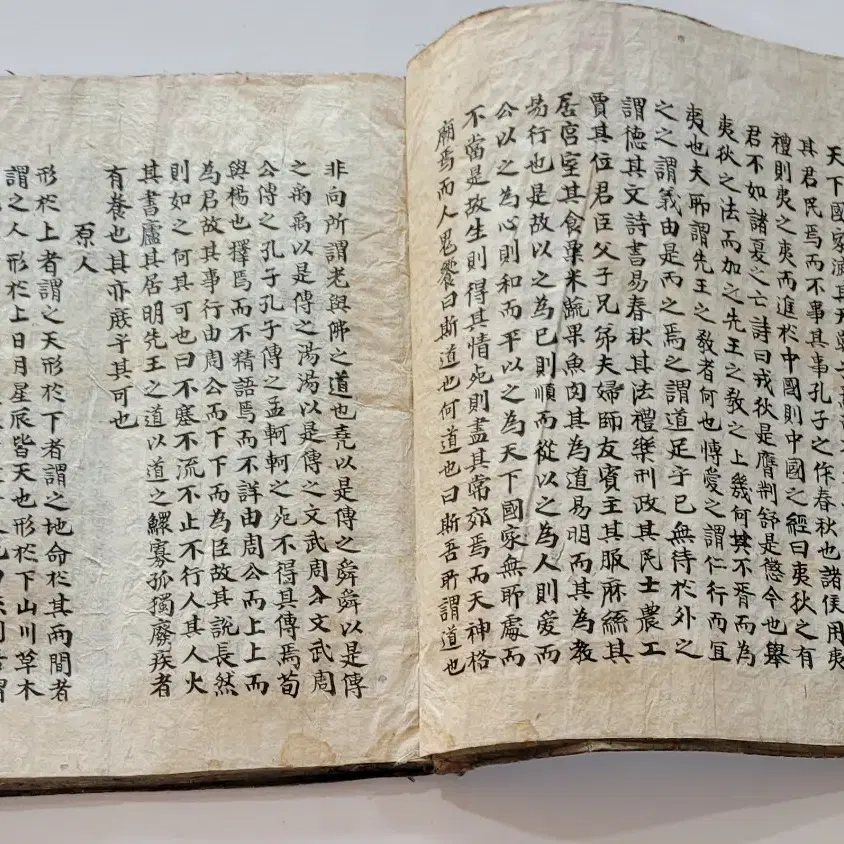 天下國家滅其天
其君民焉而不事其事孔子之作春秋也諸侯用夷
禮則夷之夷而進於中國則中國之經曰夷狄之有
君不如諸夏之亡詩曰戎狄是膺荆舒是懲今也舉
夷狄之法而加之先王之教之上幾何其不胥而為
夷也夫所謂先王之教者何也博愛之謂仁行而宜
之之謂義由是而之焉之謂道足乎已無待於外之
謂德其文詩書易春秋其法禮樂刑政其民士農工
賈其位君臣父子兄弟夫婦師友賓主其服麻絲其
居宮室其食粟米蔬果魚肉其為道易明而其為教
易行也是故以之為已則順而從以之為人則愛而
公以之為心則和而平以之為天下國家無所處而
不當是故生則得其情死則盡其常郊焉而天神格
廟焉而人鬼饗曰斯道也何道也曰斯吾所謂道也
非向所謂老與佛之道也堯以是傳之舜舜以是傳
之禹禹以是傳之湯湯以是傳之文武周公文武周
公傳之孔子孔子傳之孟軻軻之死不得其傳焉荀
與楊也擇焉而不精語焉而不詳由周公而上上而
為君故其事行由周公而下下而為臣故其說長然
則如之何其可也曰不塞不流不止不行人其人火
其書廬其居明先王之道以道之鰥寡孤獨廢疾者
有養也其亦庶乎其可也
原人
形於上者謂之天形於下者謂之地命於其兩間者
謂之人形於上日月星辰皆天也形於下山川草木